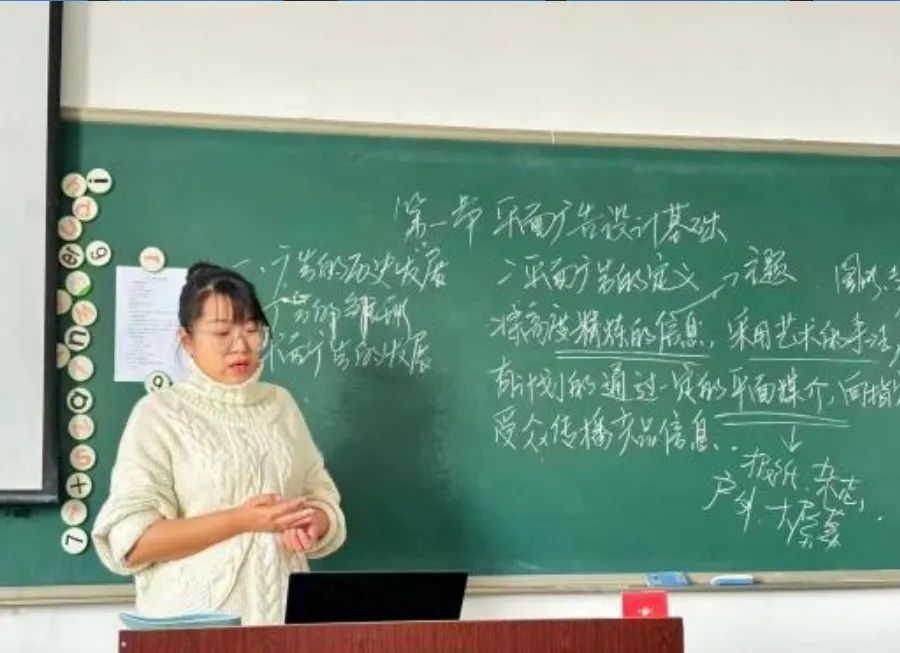 第一章 平面广告设计基础
一、广告的历史发展
平面广告的发展
二平面广告的定义
→主题
将高度精炼的信息，采用艺术的手法，
有计划的通过一定的平面媒介，向指定
受众传播产品信息..
↓
报纸、杂志，
户外、大屏幕